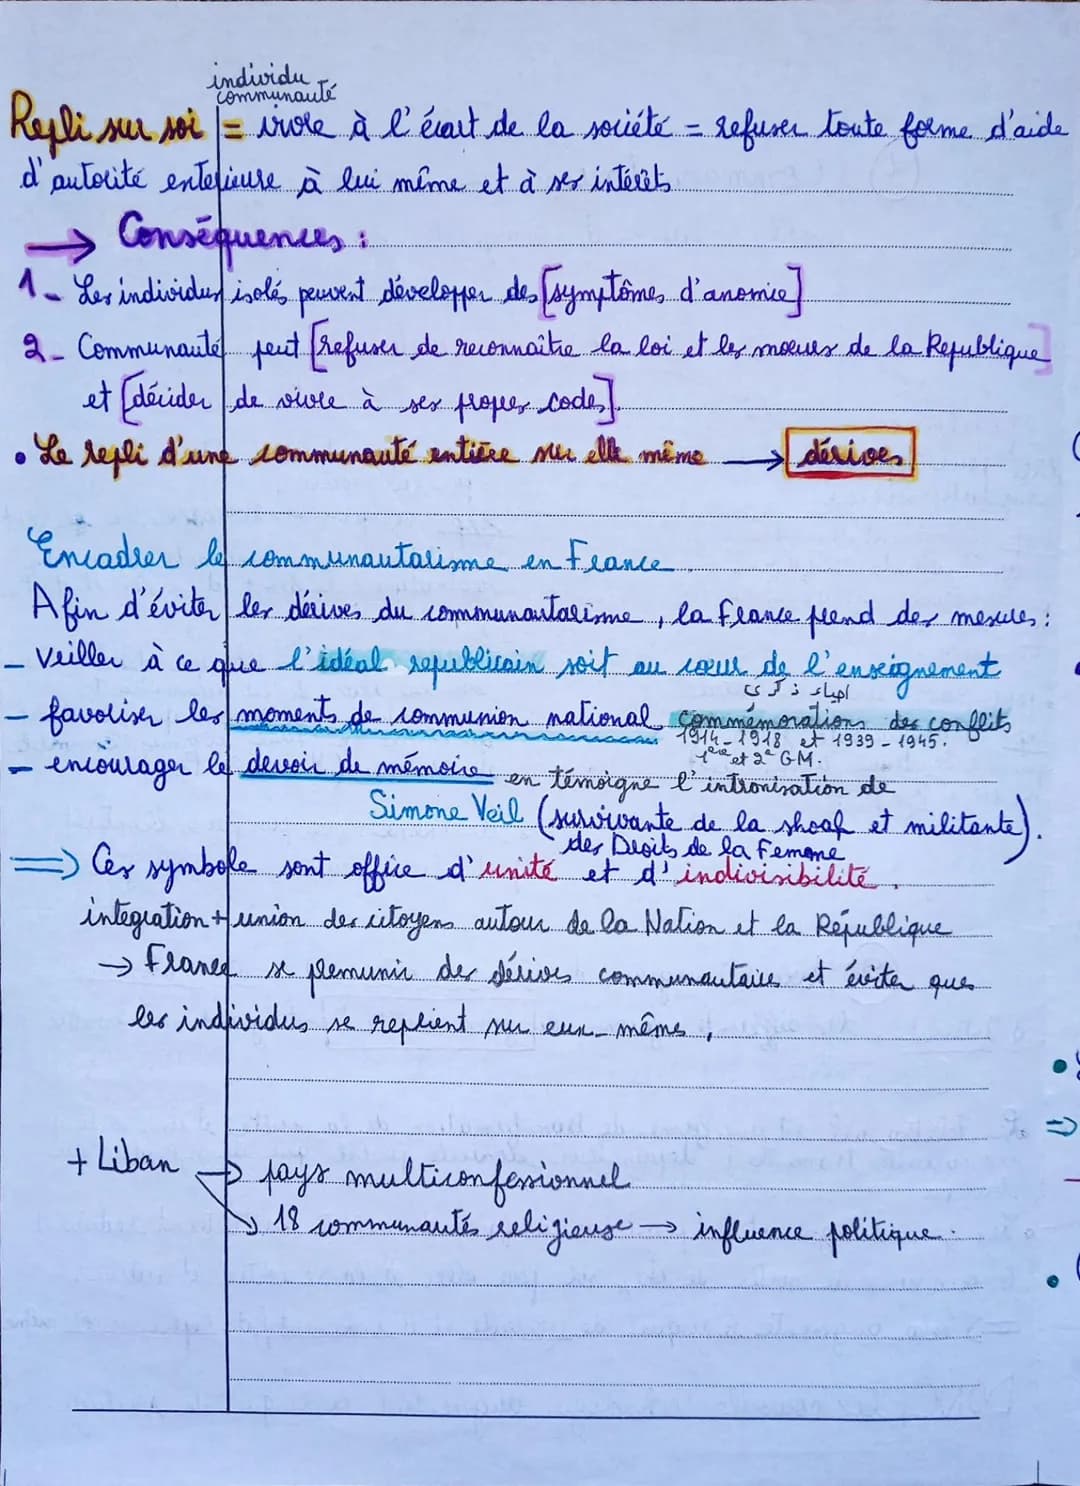 individu
communauté
Repli sur soi = vivre à l'écart de la société = refuser toute forme d'aide
d'autorité exterieure à lui même et à ses intérêts
→ Conséquences :
1- Les individus isolés peuvent développer des [symptômes d'anomie]
2- Communauté peut [refuser de reconnaître la loi et les moeurs de la Republique]
et [décider de vivre à ses propres codes].
• Le repli d'une communauté entière sur elle même → dérives
Encadrer le communautarisme en France
Afin d'éviter les dérives du communautarisme, la France prend des mesures :
- Veiller à ce que l'idéal republicain soit au cœur de l'enseignement
احياء ذكرى
- favoriser les moments de communion national commémorations des conflits
1914-1918 et 1939-1945.
1ère et 2e GM.
- encourager le devoir de mémoire en témoigne l'intronisation de
Simone Veil (survivante de la shoah et militante).
des Droits de la Femme
⇒ Ces symbole sont office d'unité et d'indivisibilité.
integration + union des citoyens autour de la Nation et la République
→ France se premunir des dérives communautaires et éviter que
les individus se replient sur eux-mêmes,
+ Liban → pays multiconfessionnel
↘ 18 communautés religieuse → influence politique.